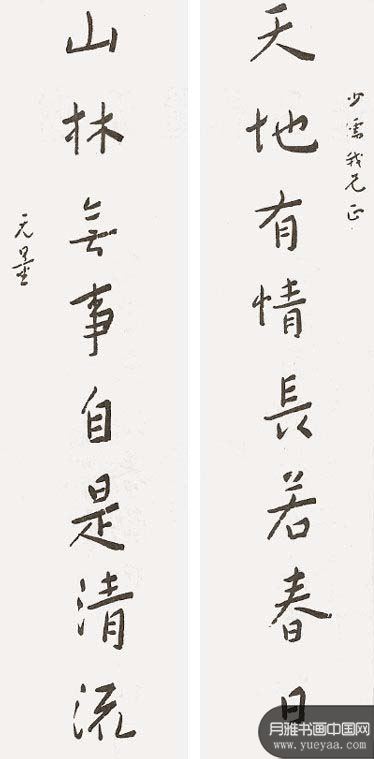 少儒我兄正
天地有情長若春日
山林無事自是清流
元墨
月雅书画中国网
www.yueyaa.com